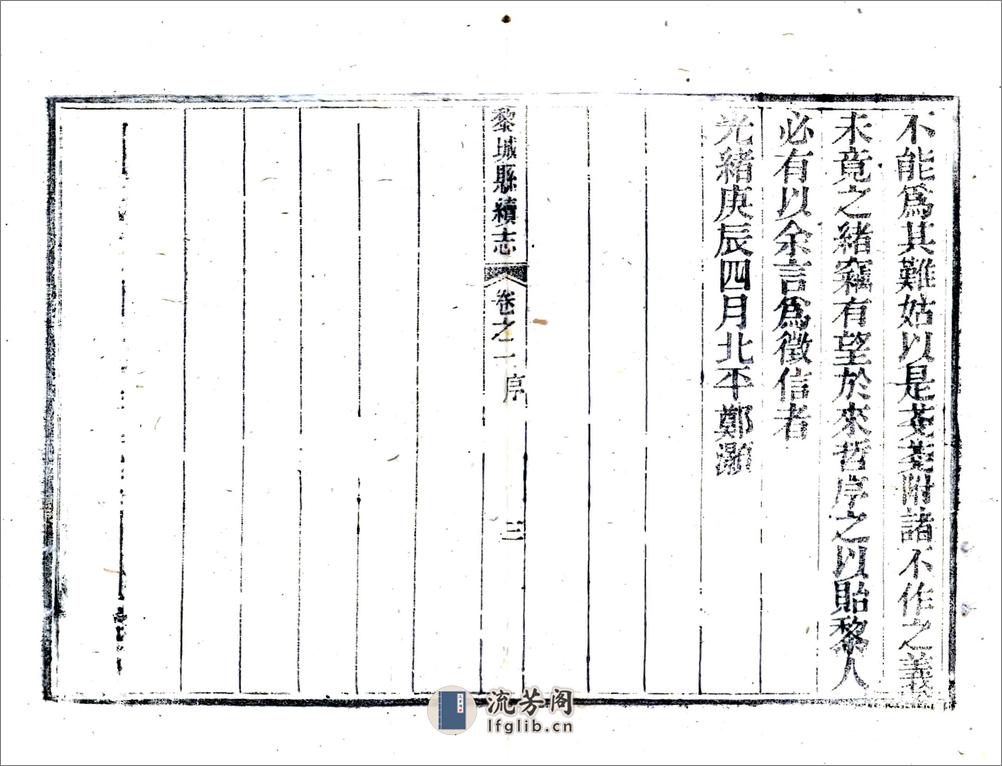 不能爲其難姑以是戔戔附諸不作之義
未竟之緒竊有望於來哲序之以貽黎人
必有以余言爲徵信者
光緒庚辰四月北平鄭灝
黎城縣續志 卷之一 序 三
流芳阁
lfglib.cn